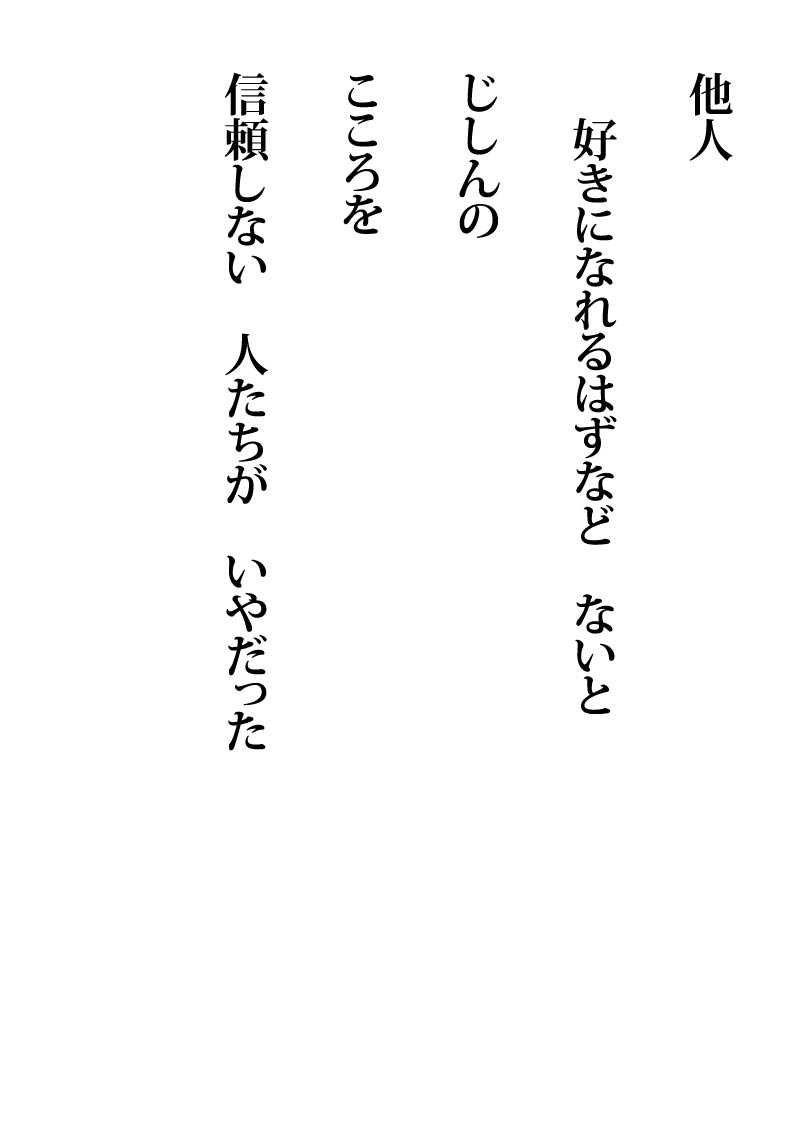 他人
好きになれるはずなど　ないと
じしんの
こころを
信頼しない　人たちが　いやだった